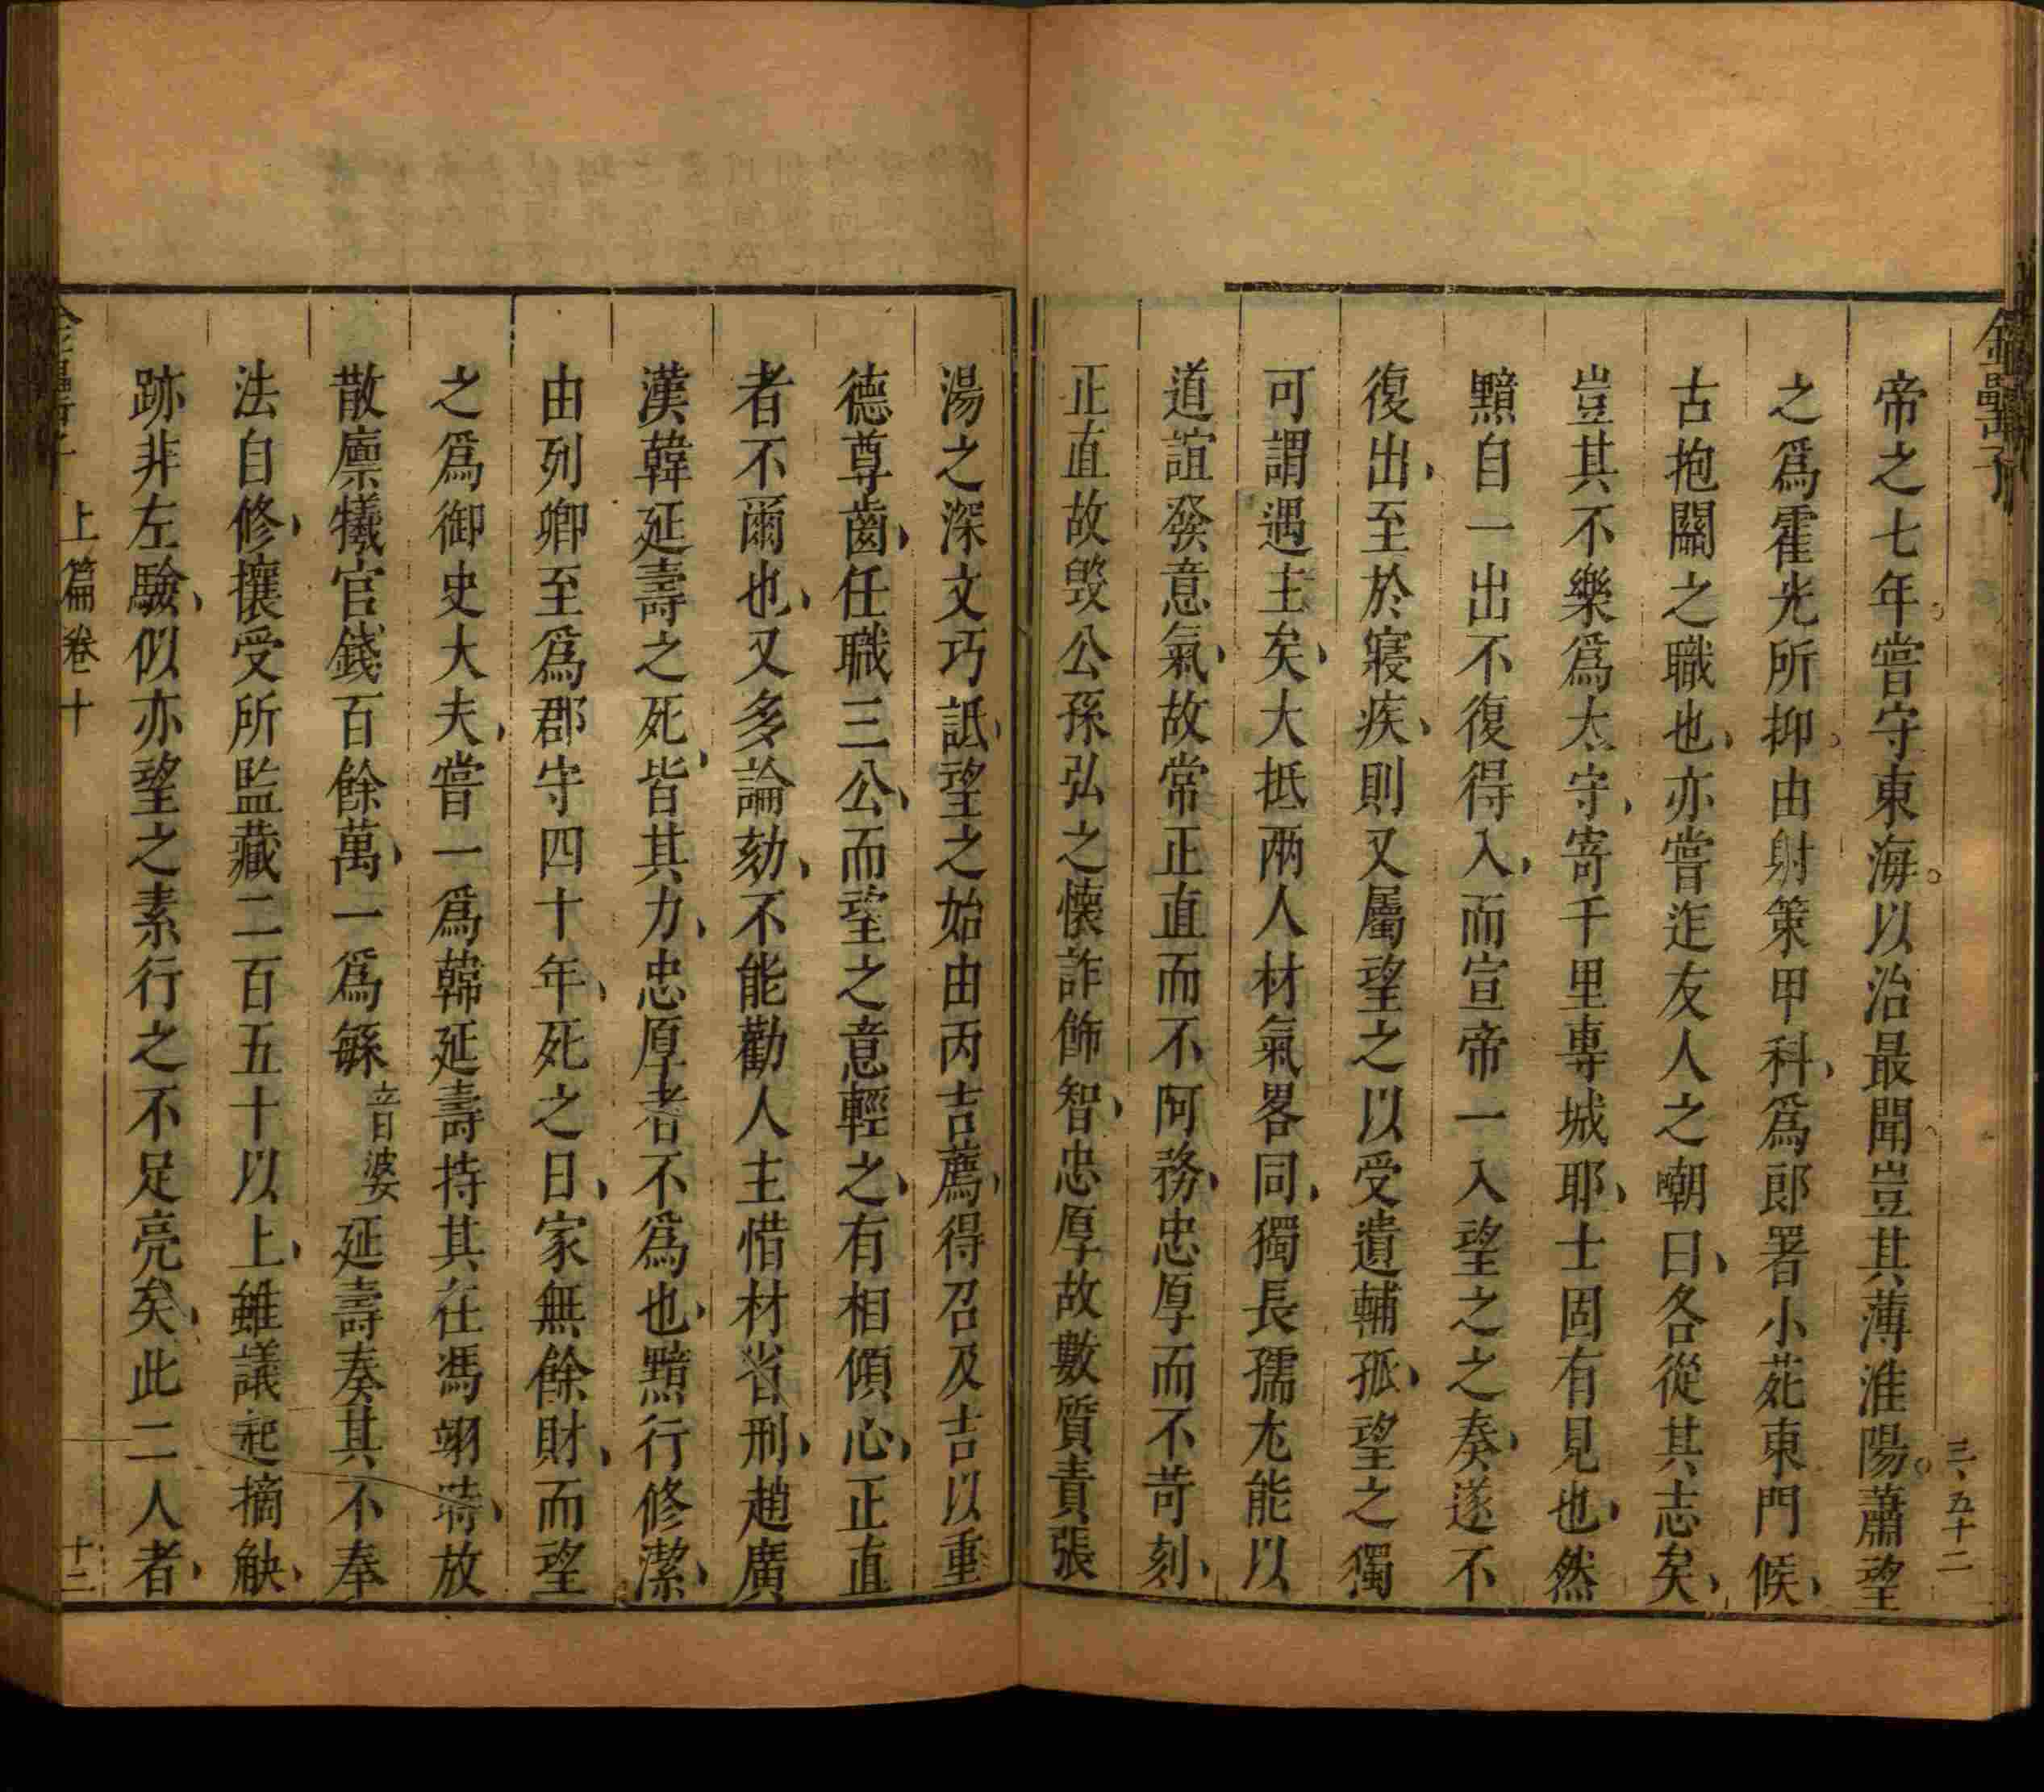 金罍子
三、五十二
帝之七年嘗守東海以治最聞豈其薄淮陽蕭望
之爲霍光所抑由射策甲科爲郎署小苑東門候
古抱關之職也亦嘗迕友人之嘲曰各從其志矣
豈其不樂爲太守寄千里專城耶士固有見也然
黯自一出不復得入而宣帝一入望之之奏遂不
復出至於寢疾則又屬望之以受遺輔孤望之獨
可謂遇主矣大抵兩人材氣畧同獨長孺尤能以
道誼發意氣故常正直而不阿務忠厚而不苛刻
正直故毀公孫弘之懷詐飾智忠厚故數質責張
湯之深文巧詆望之始由丙吉薦得召及吉以重
德尊齒任職三公而望之意輕之有相傾心正直
者不爾也又多論劾不能勸人主惜材省刑趙廣
漢韓延壽之死皆其力忠厚者不爲也黯行修潔
由列卿至爲郡守四十年死之日家無餘財而望
之爲御史大夫嘗一爲韓延壽持其在馮翊時放
散廩犧官錢百餘萬一爲繇音婆延壽奏其不奉
法自修攘受所監藏二百五十以上雖議起摘觖
跡非左驗似亦望之素行之不足亮矣此二人者
上篇卷十
十二